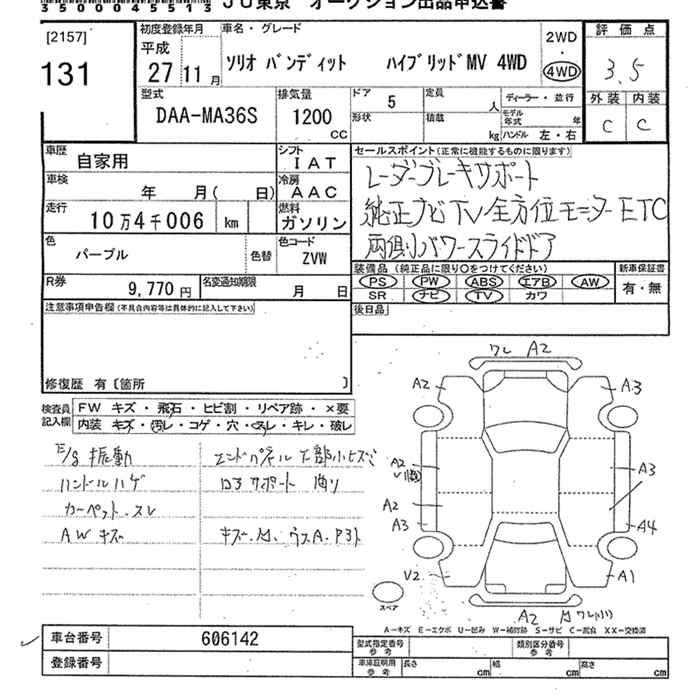 350004513 JU東京 オークション出品申込書
[2157]
131
初度登録年月 車名・グレード
平成
27 11 月
ソリオ バンディット ハイブリッドMV 4WD
2WD
・
4WD
評価点
3.5
外装 内装
C C
型式
DAA-MA36S
排気量
1200
cc
ドア 5
形状
定員 人
積載 kg
ディーラー・並行
モデル年式 年
ハンドル 左・右
車歴
自家用
車検
年 月( 日)
走行
10万4千006 km
シフト
IAT
冷房
AAC
燃料
ガソリン
色
パープル
色替
色コード
ZVW
R券
9,770 円
名変通知期限
月 日
セールスポイント(正常に機能するものに限ります)
レーダーブレーキサポート
純正ナビ TV 全方位モニター ETC
両側パワースライドドア
装備品 (純正品に限り○をつけてください)
PS PW ABS エアB AW
SR ナビ TV カワ
新車保証書
有・無
後日品
注意事項申告欄(不具合内容等は具体的に記入して下さい)
修復歴 有〔箇所 〕
検査員記入欄
FW キズ・飛石・ヒビ割・リペア跡・×要
内装 キズ・汚レ・コゲ・穴・スレ・キレ・破レ
E/g 振動
ハンドルハゲ
カーペット スレ
AW キズ
エンドパネル
コアサポート
ワレ A2
A2
A3
A2
A3
A2
A3
A4
V2
A1
A2
スペア
A-キズ E-エクボ U-凹み W-補修跡 S-サビ C-腐食 XX-交換済
車台番号 606142
登録番号
型式指定番号
参考
類別区分番号
参考
車庫証明用
参考
長さ cm
幅 cm
高さ cm